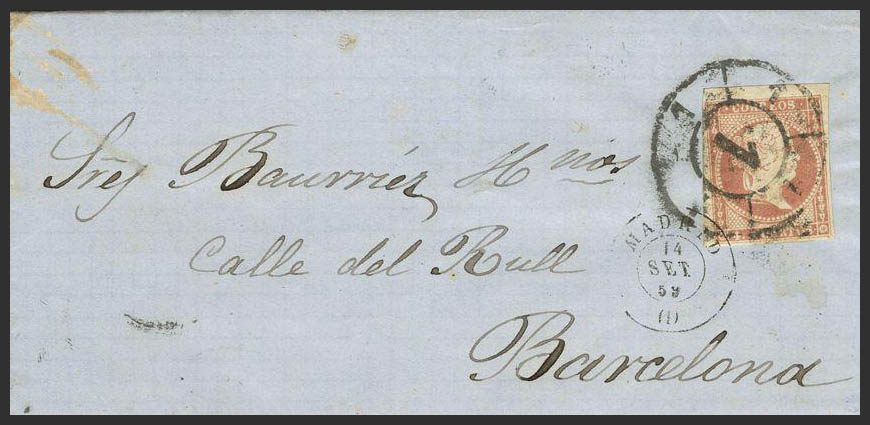 CORREOS
1
MADRID
14
SET
59
(1)
Sres Baurriér Hnos
Calle del Rull
Barcelona